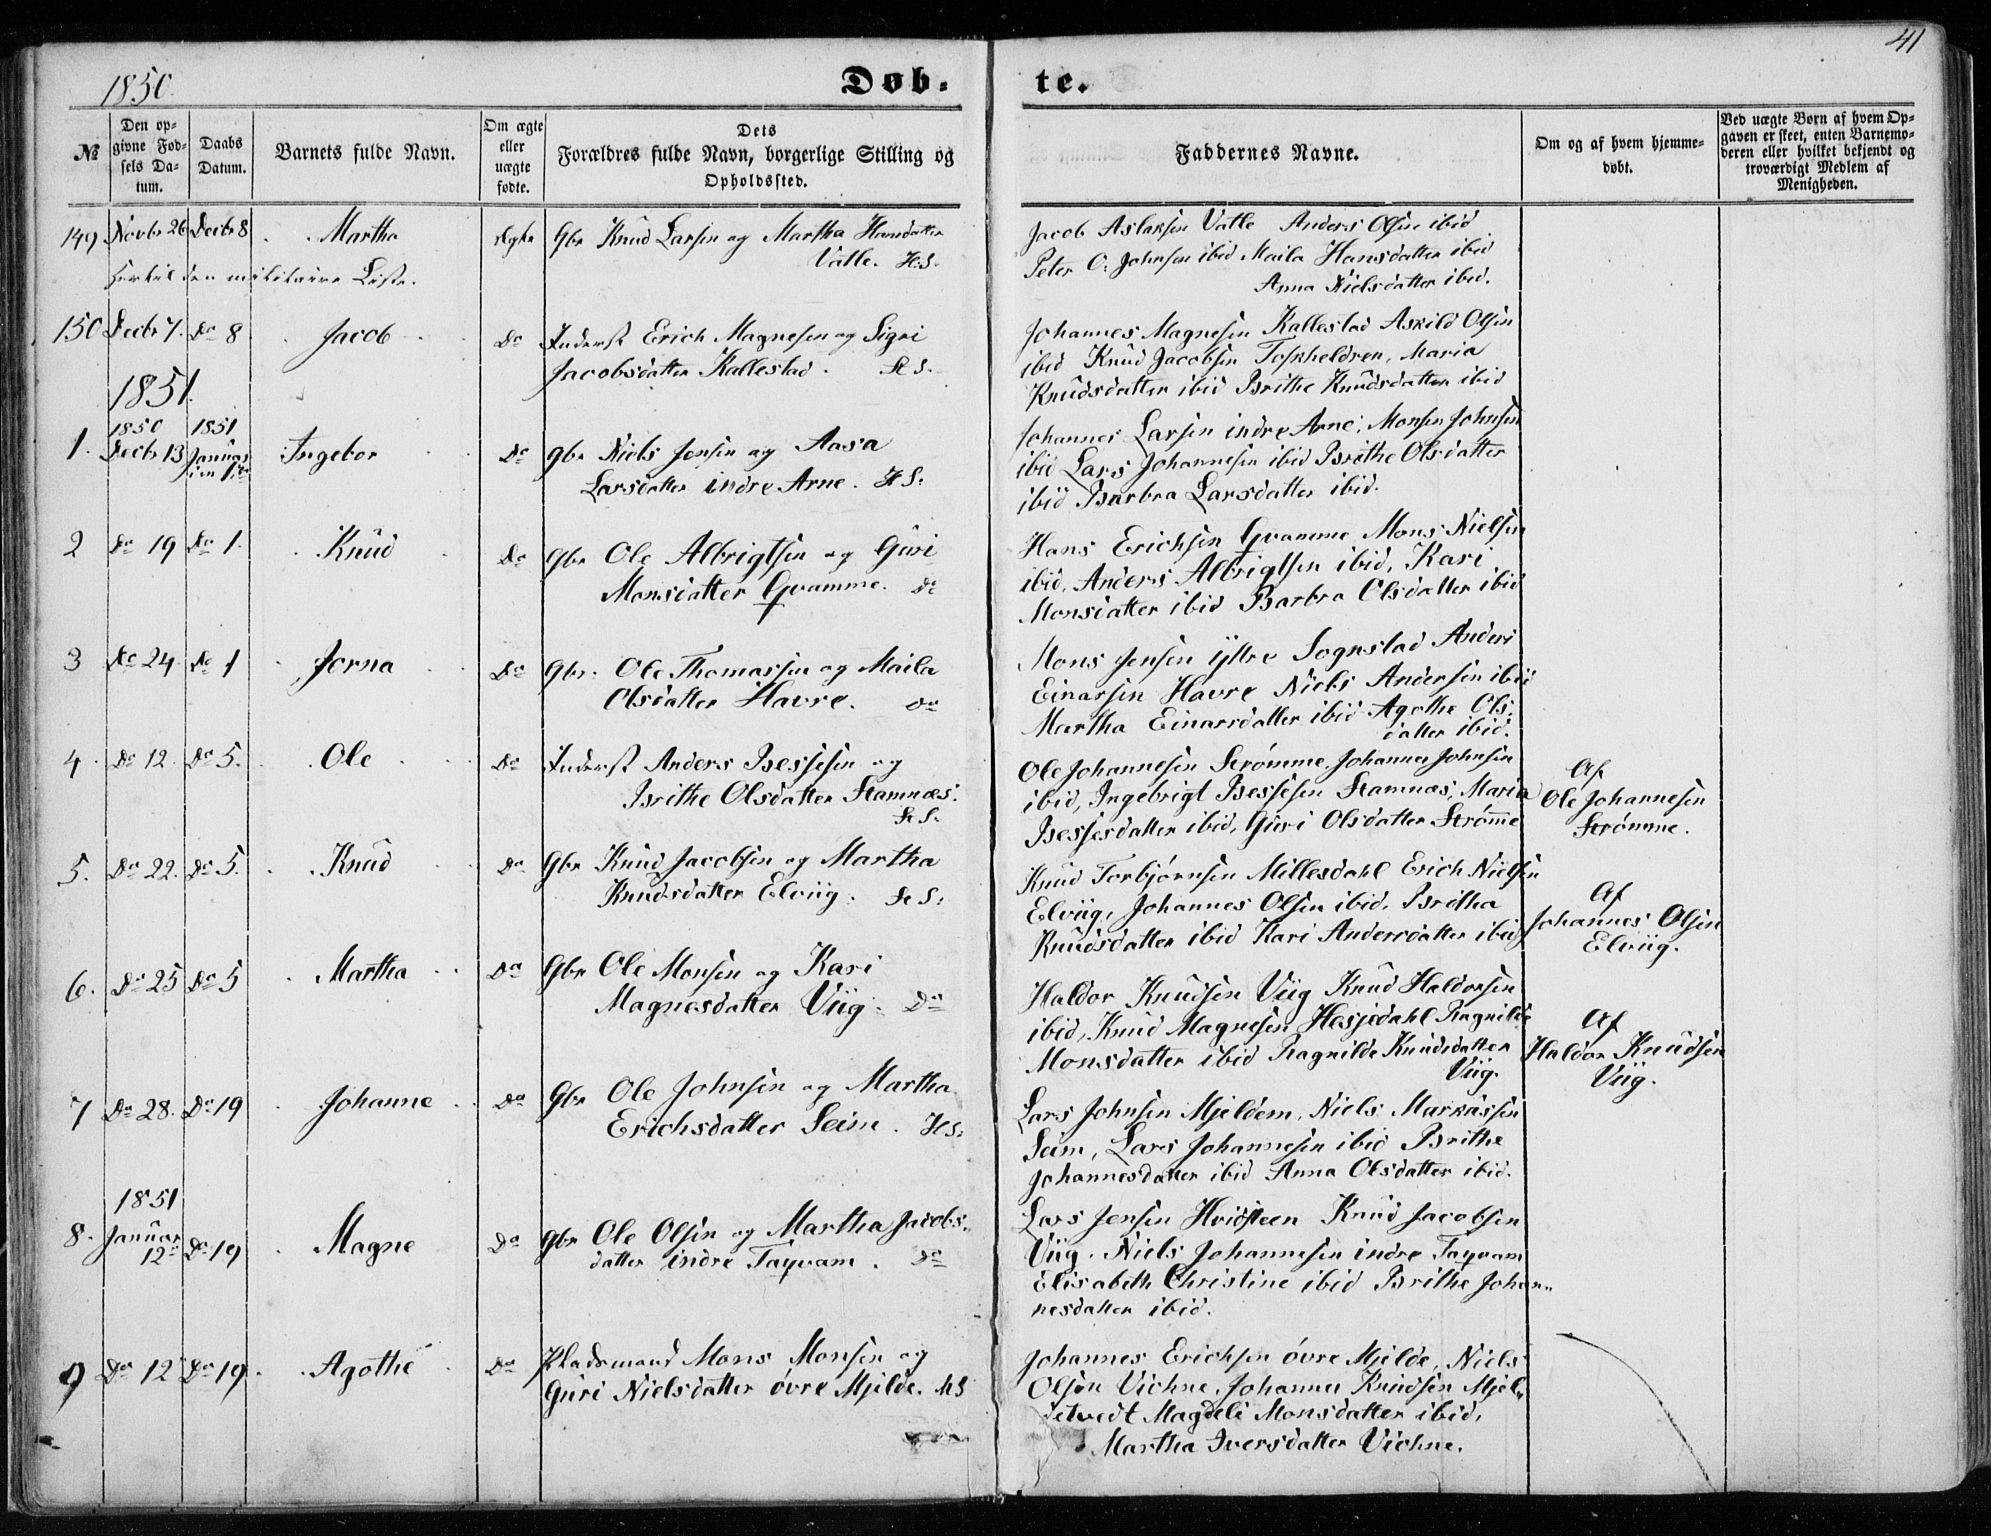 41
1850.
Døb-
te.
№
Den op-
givne Fød-
sels Da-
tum.
Daabs
Datum.
Barnets fulde Navn.
Om ægte
eller
uægte
fødte.
Dets
Forældres fulde Navn, borgerlige Stilling og
Opholdssted.
Faddernes Navne.
Om og af hvem hjemme-
døbt.
Ved uægte Børn af hvem Op-
gaven er skeet, enten Barnemo-
deren eller hvilket bekjendt og
troværdigt Medlem af
Menigheden.
149 Novbr 26 Decbr 8 Martha Ægte Gbr Knud Larsen og Martha Hansdatter
Valle. H.S.
Jacob Aslaksen Valle Anders Olsen ibid
Peter O. Johnsen ibid Maila Hansdatter ibid
Anna Nielsdatter ibid.
Hertil den militaire Liste.
150 Decbr 7. Do 8 Jacob Do Inderst Erich Magnesen og Sigri
Jacobsdatter Kallestad. St S.
Johannes Magnesen Kallestad Askild Olsen
ibid Knud Jacobsen Toskheldren, Maria
Knudsdatter ibid Brithe Knudsdatter ibid
1851.
1850 1851
1. Decbr 13 Januar Ingebor Do Gbr Niels Jensen og Aasa
den 1ste
Larsdatter indre Arne. H S.
Johannes Larsen indre Arne, Monsen Johnsen
ibid Lars Johannesen ibid Brithe Olsdatter
ibid Barbra Larsdatter ibid.
2 Do 19 Do 1. Knud Do Gbr Ole Albrigtsen og Guri
Monsdatter Qvamme. Do
Hans Erichsen Qvamme Mons Nielsen
ibid, Anders Albrigtsen ibid, Kari
Monsdatter ibid Barbra Olsdatter ibid
3 Do 24 Do 1 Jorna Do Gbr. Ole Thomassen og Maila
Olsdatter Havre. Do
Mons Jensen Yttre Sognstad Anders
Einarsen Havre Niels Andersen ibid
Martha Einarsdatter ibid Agothe Ols-
datter ibid.
4 Do 12. Do 5. Ole Do Inderst Anders Bessesen og
Brithe Olsdatter Stamnæs.
St S.
Ole Johannesen Strømme, Johannes Johnsen
ibid, Ingebrigt Bessesen Stamnæs, Maria
Bessesdatter ibid, Guri Olsdatter Strømme
Af
Ole Johannesen
Strømme.
5. Do 22. Do 5. Knud Do Gbr Knud Jacobsen og Martha
Knudsdatter Elviig. St S.
Knud Torbjørnsen Millesdahl Erich Nielsen
Elviig, Johannes Olsen ibid, Britha
Knudsdatter ibid Kari Andersdatter ibid
Af
Johannes Olsen
Elviig.
6. Do 25 Do 5 Martha Do Gbr Ole Monsen og Kari
Magnesdatter Viig. Do
Haldor Knudsen Viig Knud Haldorsen
ibid, Knud Magnesen Hesjedahl Ragnilde
Monsdatter ibid Ragnilde Knudsdatter
Viig.
Af
Haldor Knudsen
Viig.
7 Do 28. Do 19 Johanne Do Gbr Ole Johnsen og Martha
Erichsdatter Seim. H S.
Lars Johnsen Mjeldem, Niels Markussen
Seim, Lars Johannesen ibid Brithe
Johannesdatter ibid Anna Olsdatter ibid.
1851
8. Januar Do 19 Magne Do Gbr Ole Olsen og Martha Jacobs-
12te
datter indre Taqvam. Do
Lars Jensen Hvidsteen Knud Jacobsen
Viig. Niels Johannesen indre Taqvam
Elisabeth Christine ibid Brithe Johan-
nesdatter ibid.
9 Do 12 Do 19. Agothe Do Pladsmand Mons Monsen og
Guri Nielsdatter øvre Mjelde. H S
Johannes Erichsen øvre Mjelde, Niels
Olsen Vichne, Johannes Knudsen Mjel-
detvedt Magdeli Monsdatter ibid,
Martha Iversdatter Vichne.